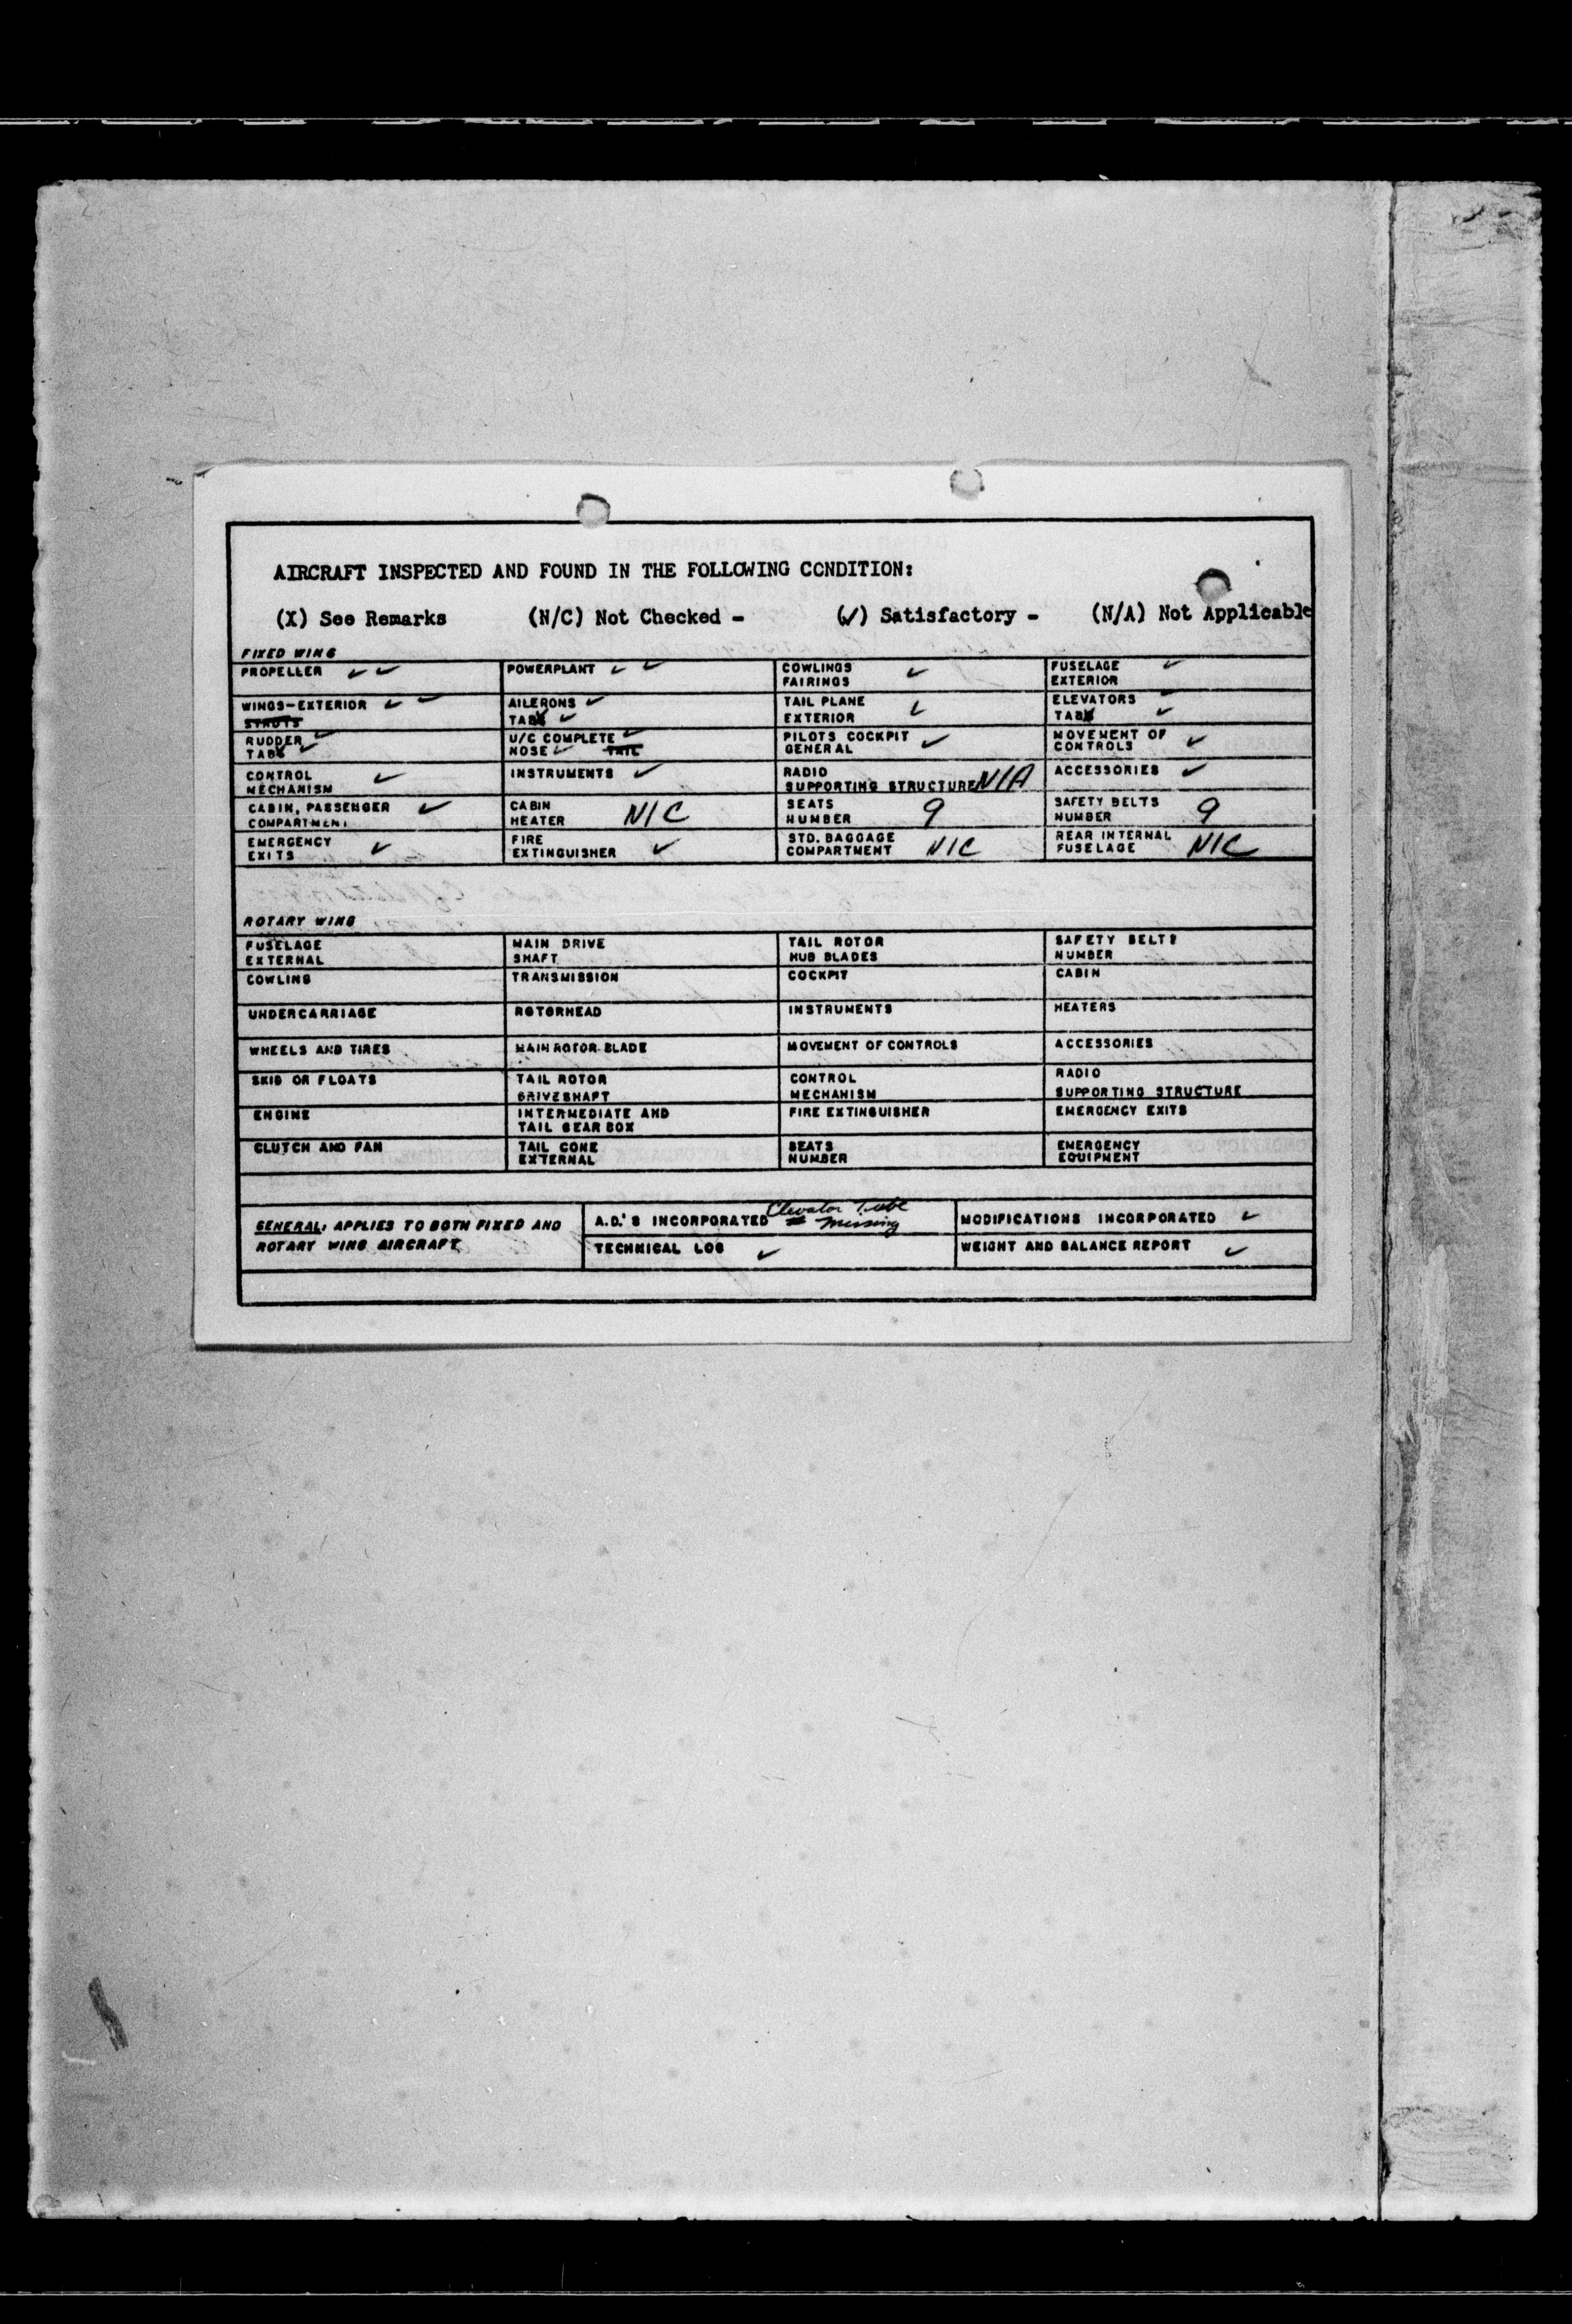 AIRCRAFT INSPECTED AND FOUND IN THE FOLLOWING CONDITION:
(X) See Remarks (N/C) Not Checked - (✓) Satisfactory - (N/A) Not Applicable
FIXED WING
PROPELLER ✓ ✓ POWERPLANT ✓ ✓ COWLINGS FAIRINGS ✓ FUSELAGE EXTERIOR ✓
WINGS-EXTERIOR ✓ ✓ STRUTS AILERONS ✓ TAB ✓ TAIL PLANE EXTERIOR ✓ ELEVATORS ✓ TAB ✓
RUDDER ✓ TAB ✓ U/C COMPLETE ✓ NOSE ✓ TAIL PILOTS COCKPIT GENERAL ✓ MOVEMENT OF CONTROLS ✓
CONTROL MECHANISM ✓ INSTRUMENTS ✓ RADIO SUPPORTING STRUCTURE N/A ACCESSORIES ✓
CABIN, PASSENGER COMPARTMENT ✓ CABIN HEATER N/C SEATS NUMBER 9 SAFETY BELTS NUMBER 9
EMERGENCY EXITS ✓ FIRE EXTINGUISHER ✓ STD. BAGGAGE COMPARTMENT N/C REAR INTERNAL FUSELAGE N/C
ROTARY WING
FUSELAGE EXTERNAL MAIN DRIVE SHAFT TAIL ROTOR HUB BLADES SAFETY BELTS NUMBER
COWLING TRANSMISSION COCKPIT CABIN
UNDERCARRIAGE ROTORHEAD INSTRUMENTS HEATERS
WHEELS AND TIRES MAIN ROTOR BLADE MOVEMENT OF CONTROLS ACCESSORIES
SKID OR FLOATS TAIL ROTOR DRIVESHAFT CONTROL MECHANISM RADIO SUPPORTING STRUCTURE
ENGINE INTERMEDIATE AND TAIL GEAR BOX FIRE EXTINGUISHER EMERGENCY EXITS
CLUTCH AND FAN TAIL CONE EXTERNAL SEATS NUMBER EMERGENCY EQUIPMENT
GENERAL: APPLIES TO BOTH FIXED AND ROTARY WING AIRCRAFT
A.D.'S INCORPORATED Elevator Tube Missing MODIFICATIONS INCORPORATED ✓
TECHNICAL LOG ✓ WEIGHT AND BALANCE REPORT ✓